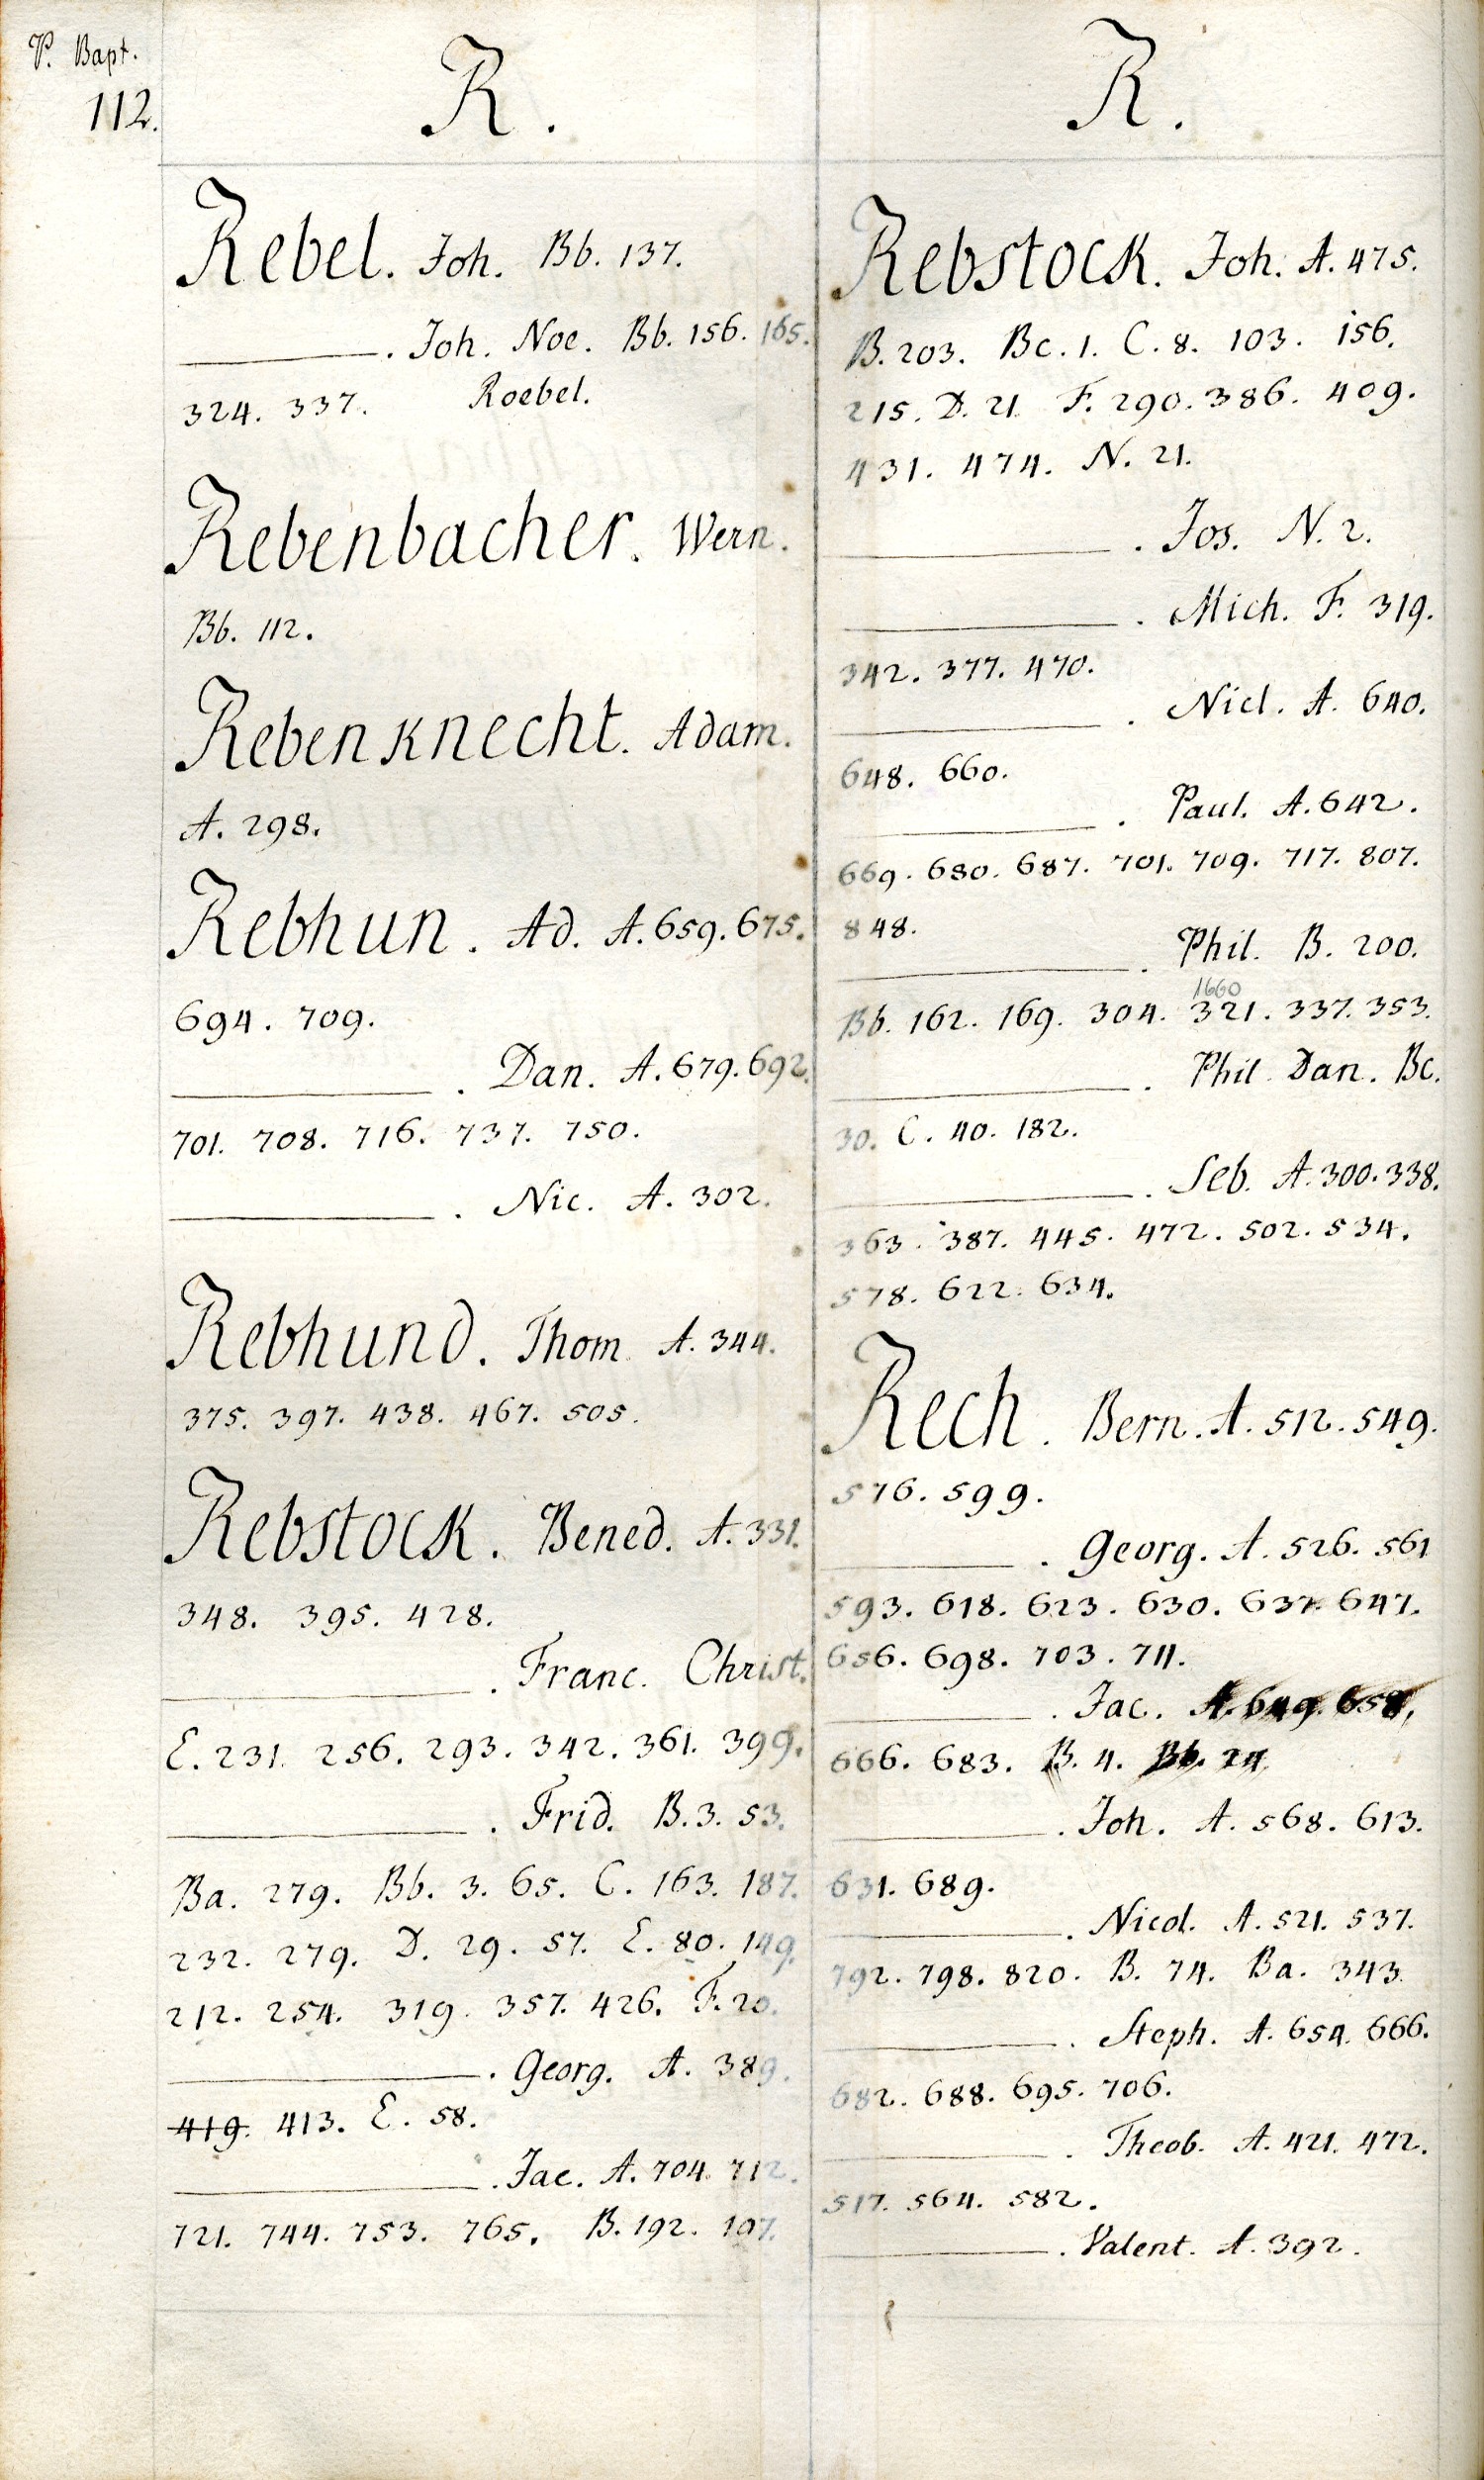 P. Bapt.
112.
R.
Rebel. Joh. Bb. 137.
. Joh. Noe. Bb. 156. 165.
324. 337. Roebel.
Rebenbacher. Wern.
Bb. 112.
Rebenknecht. Adam.
A. 298.
Rebhun. Ad. A. 659. 675.
694. 709.
. Dan. A. 679. 692.
701. 708. 716. 737. 750.
. Nic. A. 302.
Rebhund. Thom. A. 344.
375. 397. 438. 467. 505.
Rebstock. Bened. A. 331.
348. 395. 428.
. Franc. Christ.
E. 231. 256. 293. 342. 361. 399.
. Frid. B. 3. 53.
Ba. 279. Bb. 3. 65. C. 163. 187.
232. 279. D. 29. 57. E. 80. 149.
212. 254. 319. 357. 426. F. 20.
. Georg. A. 389.
419. 413. E. 58.
. Jac. A. 704. 712.
721. 744. 753. 765. B. 192. 197.
R.
Rebstock. Joh. A. 475.
B. 203. Bc. 1. C. 8. 103. 156.
215. D. 21. F. 290. 386. 409.
431. 474. N. 21.
. Jos. N. 2.
. Mich. F. 319.
342. 377. 470.
. Nicl. A. 640.
648. 660.
. Paul. A. 642.
669. 680. 687. 701. 709. 717. 807.
848.
. Phil. B. 200.
1660
Bb. 162. 169. 304. 321. 337. 353.
. Phil. Dan. Bc.
30. C. 40. 182.
. Seb. A. 300. 338.
363. 387. 445. 472. 502. 534.
578. 622. 634.
Rech. Bern. A. 512. 549.
576. 599.
. Georg. A. 526. 561
593. 618. 623. 630. 637. 647.
656. 698. 703. 711.
. Jac. A. 649. 658.
666. 683. B. 4. Bb. 24.
. Joh. A. 568. 613.
631. 689.
. Nicol. A. 521. 537.
792. 798. 820. B. 74. Ba. 343.
. Steph. A. 654. 666.
682. 688. 695. 706.
. Theob. A. 421. 472.
517. 564. 582.
. Valent. A. 392.